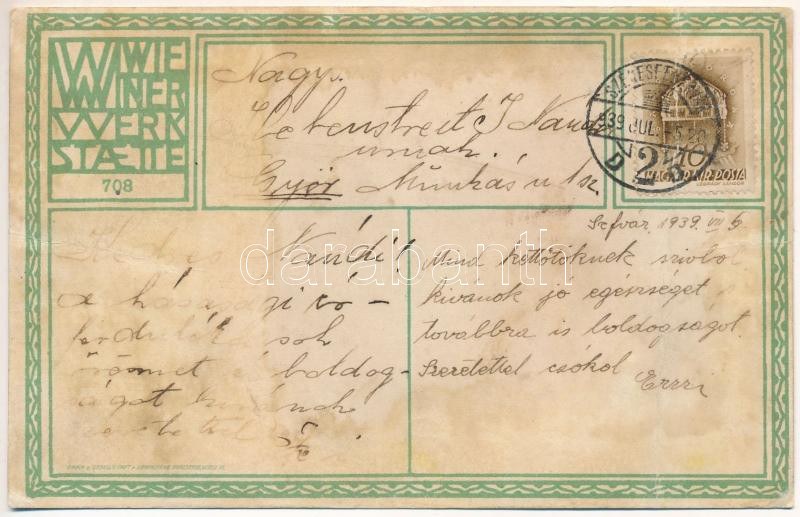 WIE
NER
WERK
STAETTE
708
Nagys.
Lebenstreit J Nándor
urnak
Győr Munkás u 1 sz.
SZÉKESFEHÉRVÁR
939 JUL. 5. 20
2D
10
MAGYAR KIR. POSTA
LÉGRÁDY SÁNDOR
Kedves Nándi!
a házassági év-
fordulók sok
örömet és boldog-
ságot kívánok
Szfvár, 1939. VII 5
Mind kettőtöknek szivből
kivanok jó egészséget s
továbbra is boldogságot.
Szeretettel csókol
Errzi
darabanth